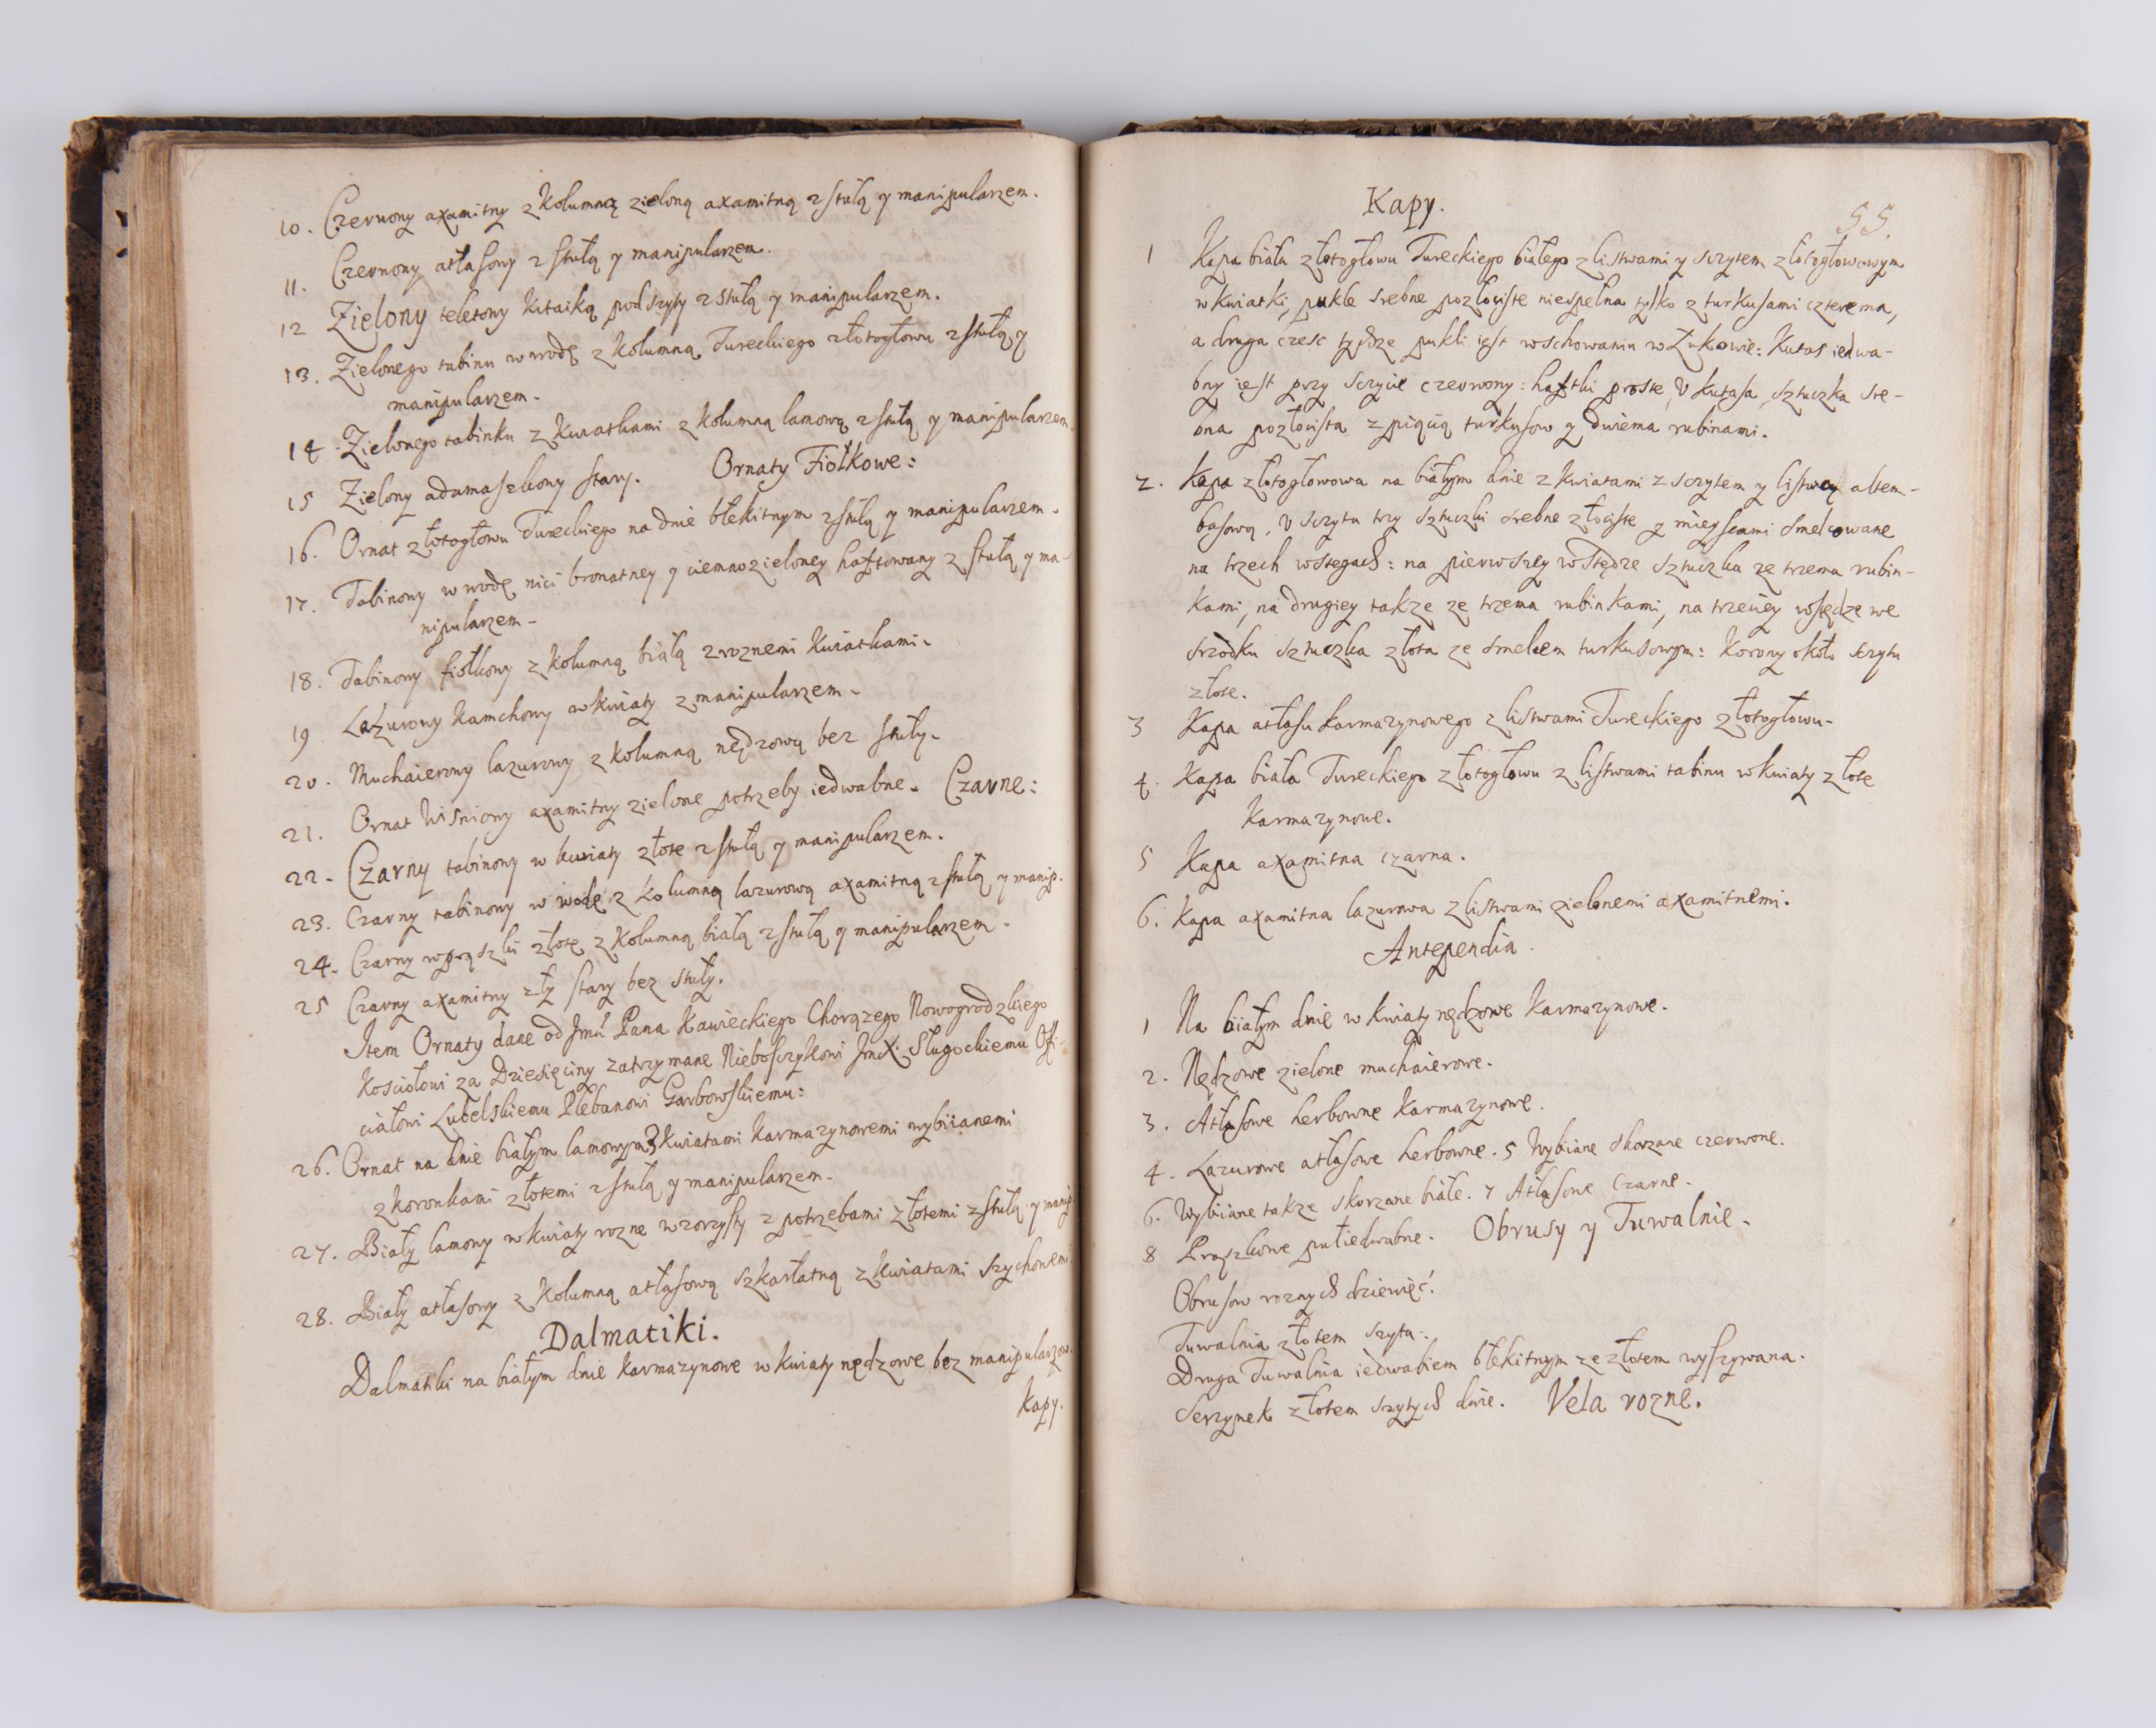 10. Czerwony axamitny z kolumną zieloną axamitną z stułą y manipularzem.
11. Czerwony atłasowy z stułą y manipularzem.
12 Zielony teletowy kitaiką podszyty z stułą y manipularzem.
13. Zielonego tabinu w wodę z kolumną Tureckiego złotogłowu z stułą y
manipularzem.
14 Zielonego tabinku z kwiatkami z kolumną lamową z stułą y manipularzem
15 Zielony adamaszkowy stary. Ornaty Fiołkowe:
16. Ornat złotogłowu Tureckiego na dnie błekitnym z stułą y manipularzem.
17. Tabinowy w wodę nici bronatney y ciemnozieloney haftowany z stułą y ma-
nipularzem.
18. Tabinowy fiołkowy z kolumną białą z roznemi kwiatkami.
19 Lazurowy kamchowy w kwiaty z manipularzem.
20. Muchaierowy lazurowy z kolumną nędzową bez stuły.
21. Ornat Wisniowy axamitny zielone potrzeby iedwabne. Czarne:
22. Czarny tabinowy w kwiaty złote z stułą y manipularzem.
23. Czarny tabinowy w wodę z kolumną lazurową axamitną z stułą y manip.
24. Czarny w prążki złote z kolumną białą z stułą y manipularzem.
25 Czarny axamitny zły stary bez stuły.
Item Ornaty dane od Pana Kawieckiego Chorązego Nowogrodzkiego
Kosciołowi za Dziesięciny zatrzymane Nieboszczykowi JmX. Sługockiemu Offi-
ciałowi Lubelskiemu Plebanowi Garbowskiemu:
26. Ornat na dnie białym lamowym z kwiatami karmazynowemi wybiianemi
z koronkami złotemi z stułą y manipularzem.
27. Biały lamowy w kwiaty rozne wzorzysty z potrzebami złotemi z stułą y manip.
28. Biały atłasowy z kolumną atłasową szkarłatną z kwiatami szychowemi
Dalmatiki.
Dalmatiki na białym dnie karmazynowe w kwiaty nędzowe bez manipularzow.
Kapy.
Kapy.
55.
1 Kapa biała złotogłowu Tureckiego białego z listwami y sczytem złotogłowowym
w kwiatki, pukle srebne pozłociste niespełna tylko z turkusami czterema,
a druga czesc tychze pukli iest w schowaniu w Zukowie: Kutas iedwa-
bny iest przy sczycie czerwony: haftki proste, V kutasa sztuczka sre-
bna pozłocista z piącią turkusow y dwiema rubinami.
2. Kapa złotogłowowa na białym dnie z kwiatami z sczytem y listwą altem-
basową, V sczytu trzy sztuczki srebne złociste y mieyscami smelcowane
na trzech wstegach: na pierwszey wstędze sztuczka ze trzema rubin-
kami, na drugiey takze ze trzema rubinkami, na trzeciey wstędze we
srzodku sztuczka złota ze smelcem turkusowym: Korony około sczytu
złote.
3 Kapa atłasu karmazynowego z listwami Tureckiego złotogłowu.
4. Kapa biała Tureckiego złotogłowu z listwami tabinu w kwiaty złote
karmazynowe.
5 Kapa axamitna czarna.
6. Kapa axamitna lazurowa z listwami zielonemi axamitnemi.
Antependia.
1 Na białym dnie w kwiaty nędzowe karmazynowe.
2. Nędzowe zielone muchaierowe.
3. Atłasowe herbowne karmazynowe.
4. Lazurowe atłasowe herbowne. 5 Wybiiane skorzane czerwone.
6. Wybiiane takze skorzane białe. 7 Atłasowe czarne.
8 Prążkowe pułiedwabne. Obrusy y Tuwalnie.
Obrusow roznych dziewięć.
Tuwalnia złotem szyta.
Druga Tuwalnia iedwabiem błekitnym ze złotem wyszywana.
Serzynek złotem szytych dwie. Vela rozne.